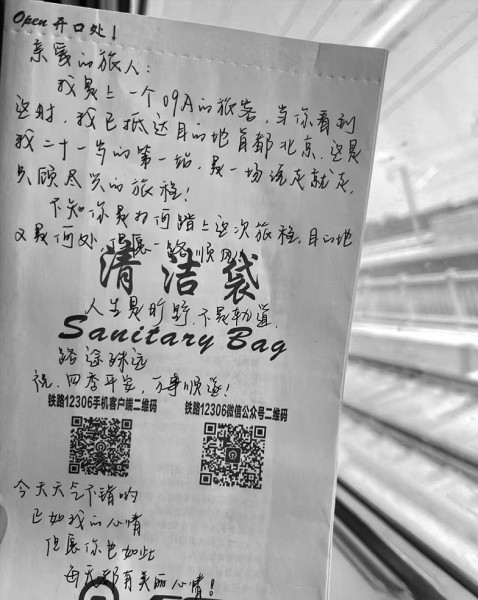 Open 开口处!
亲爱的旅人:
我是上一个09A的旅客,当你看到
这时,我已抵达目的地首都北京,这是
我二十一岁的第一站,是一场说走就走,
只顾尽兴的旅程!
不知你是为何踏上这次旅程,目的地
又是何处,但愿一路顺风
清洁袋
人生是旷野,不是轨道,
Sanitary Bag
路途
祝:四季平安,万事顺遂!
铁路12306手机客户端二维码 铁路12306微信公众号二维码
今天天气不错哟
已如我的心情
但愿你也如此
每天都有美丽心情!